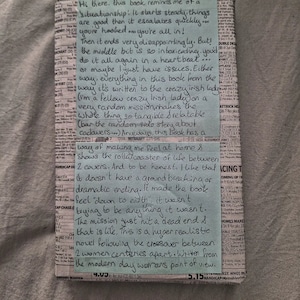 Hi there. This book reminds me of a
situationship. It starts steady, things
are good then it escalates quickly
you're hooked you're all in!
Then it ends very disappointingly. But
the middle bit is so intoxicating you'd
do it all again in a heart beat...
or maybe I just have issues. Either
way. everything in this book from the
way its written to the crazy irish lady
(from a fellow crazy Irish lady) on a
very random mission makes the
whole thing so tangible & relatable
(bar the random side story about
cadavers) Anyway this book has a
way of making you feel at home &
shows the rollercoaster of life between
2 covers. And to be honest I like that
it doesn't have a grand
dramatic ending. It made the book
feel "down to earth". It wasn't
trying to be anything it wasn't.
The mission just hit a dead end &
that is life. This is a hyper realistic
novel following the crossover between
2 women centuries apart
the modern day womans point of view.
4.05
5.15